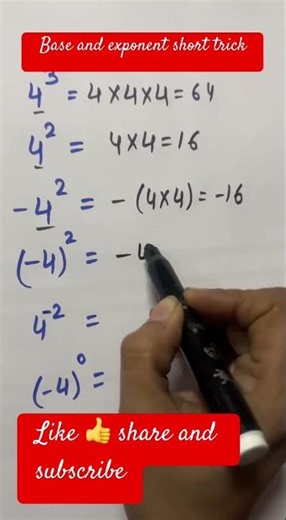 Base and exponent short trick
4³ = 4×4×4=64
4² = 4×4=16
-4² = -(4×4)=-16
(-4)² = -4
4⁻² =
(-4)⁰ =
Like 👍 share and
subscribe